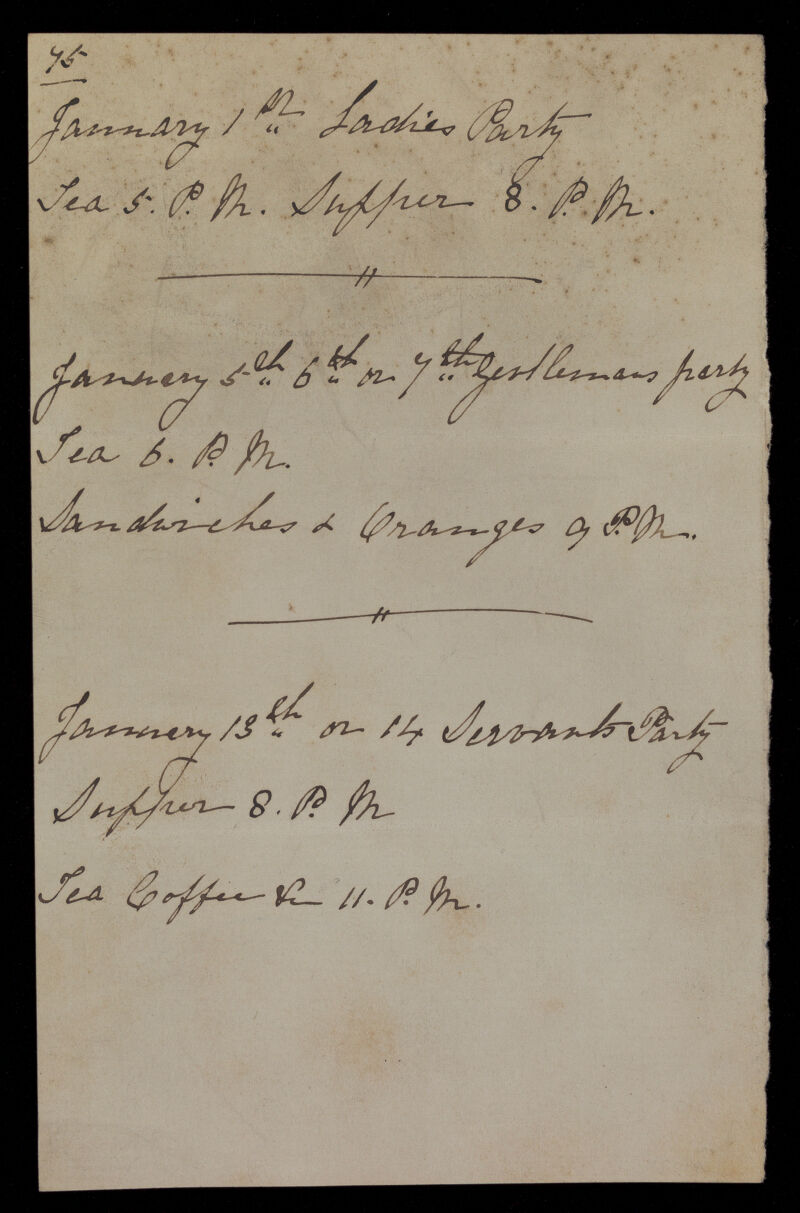 75
January 1st Ladies Party
Tea 5. P. M. Supper 8. P. M.
January 5th 6th or 7th Gentlemans party
Tea 6. P. M.
Sandwiches & Oranges 9 P. M.
January 13th or 14 Servants Party
Supper 8. P. M
Tea Coffee &c 11. P. M.